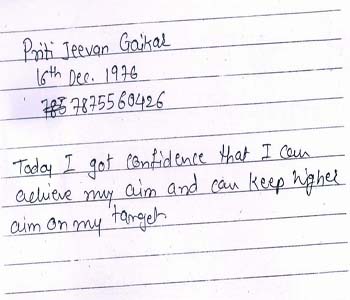 Priti Jeevan Gaikar
16th Dec. 1976
7875560426
Today I got confidence that I can
achieve my aim and can keep higher
aim on my target.